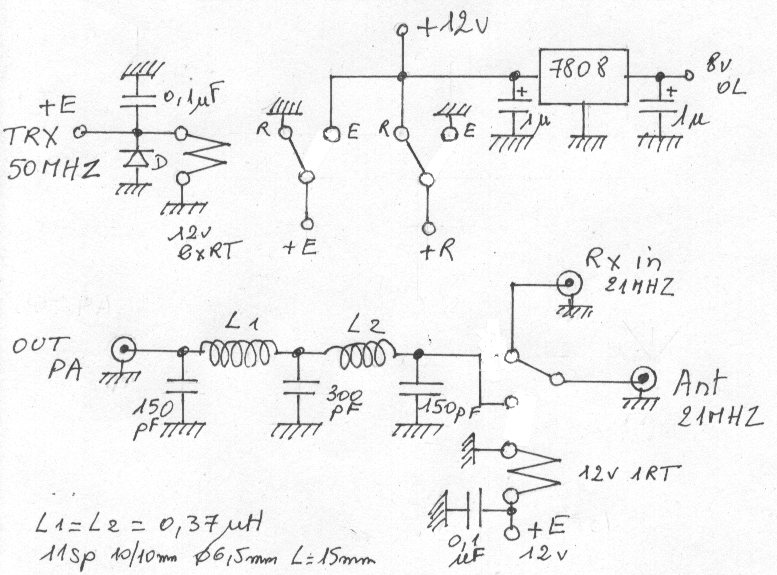 +12v
0,1µF
7808
8v
OL
+E
TRX
50MHZ
D
R
E
R
E
+
1µ
+
1µ
12v
2xRT
+E
+R
Rx in
21MHZ
OUT
PA
L1
L2
150
pF
300
pF
150pF
Ant
21MHZ
12v 1RT
0,1
µF
+E
12v
L1=L2 = 0,37µH
11sp 10/10mm ø6,5mm L=15mm